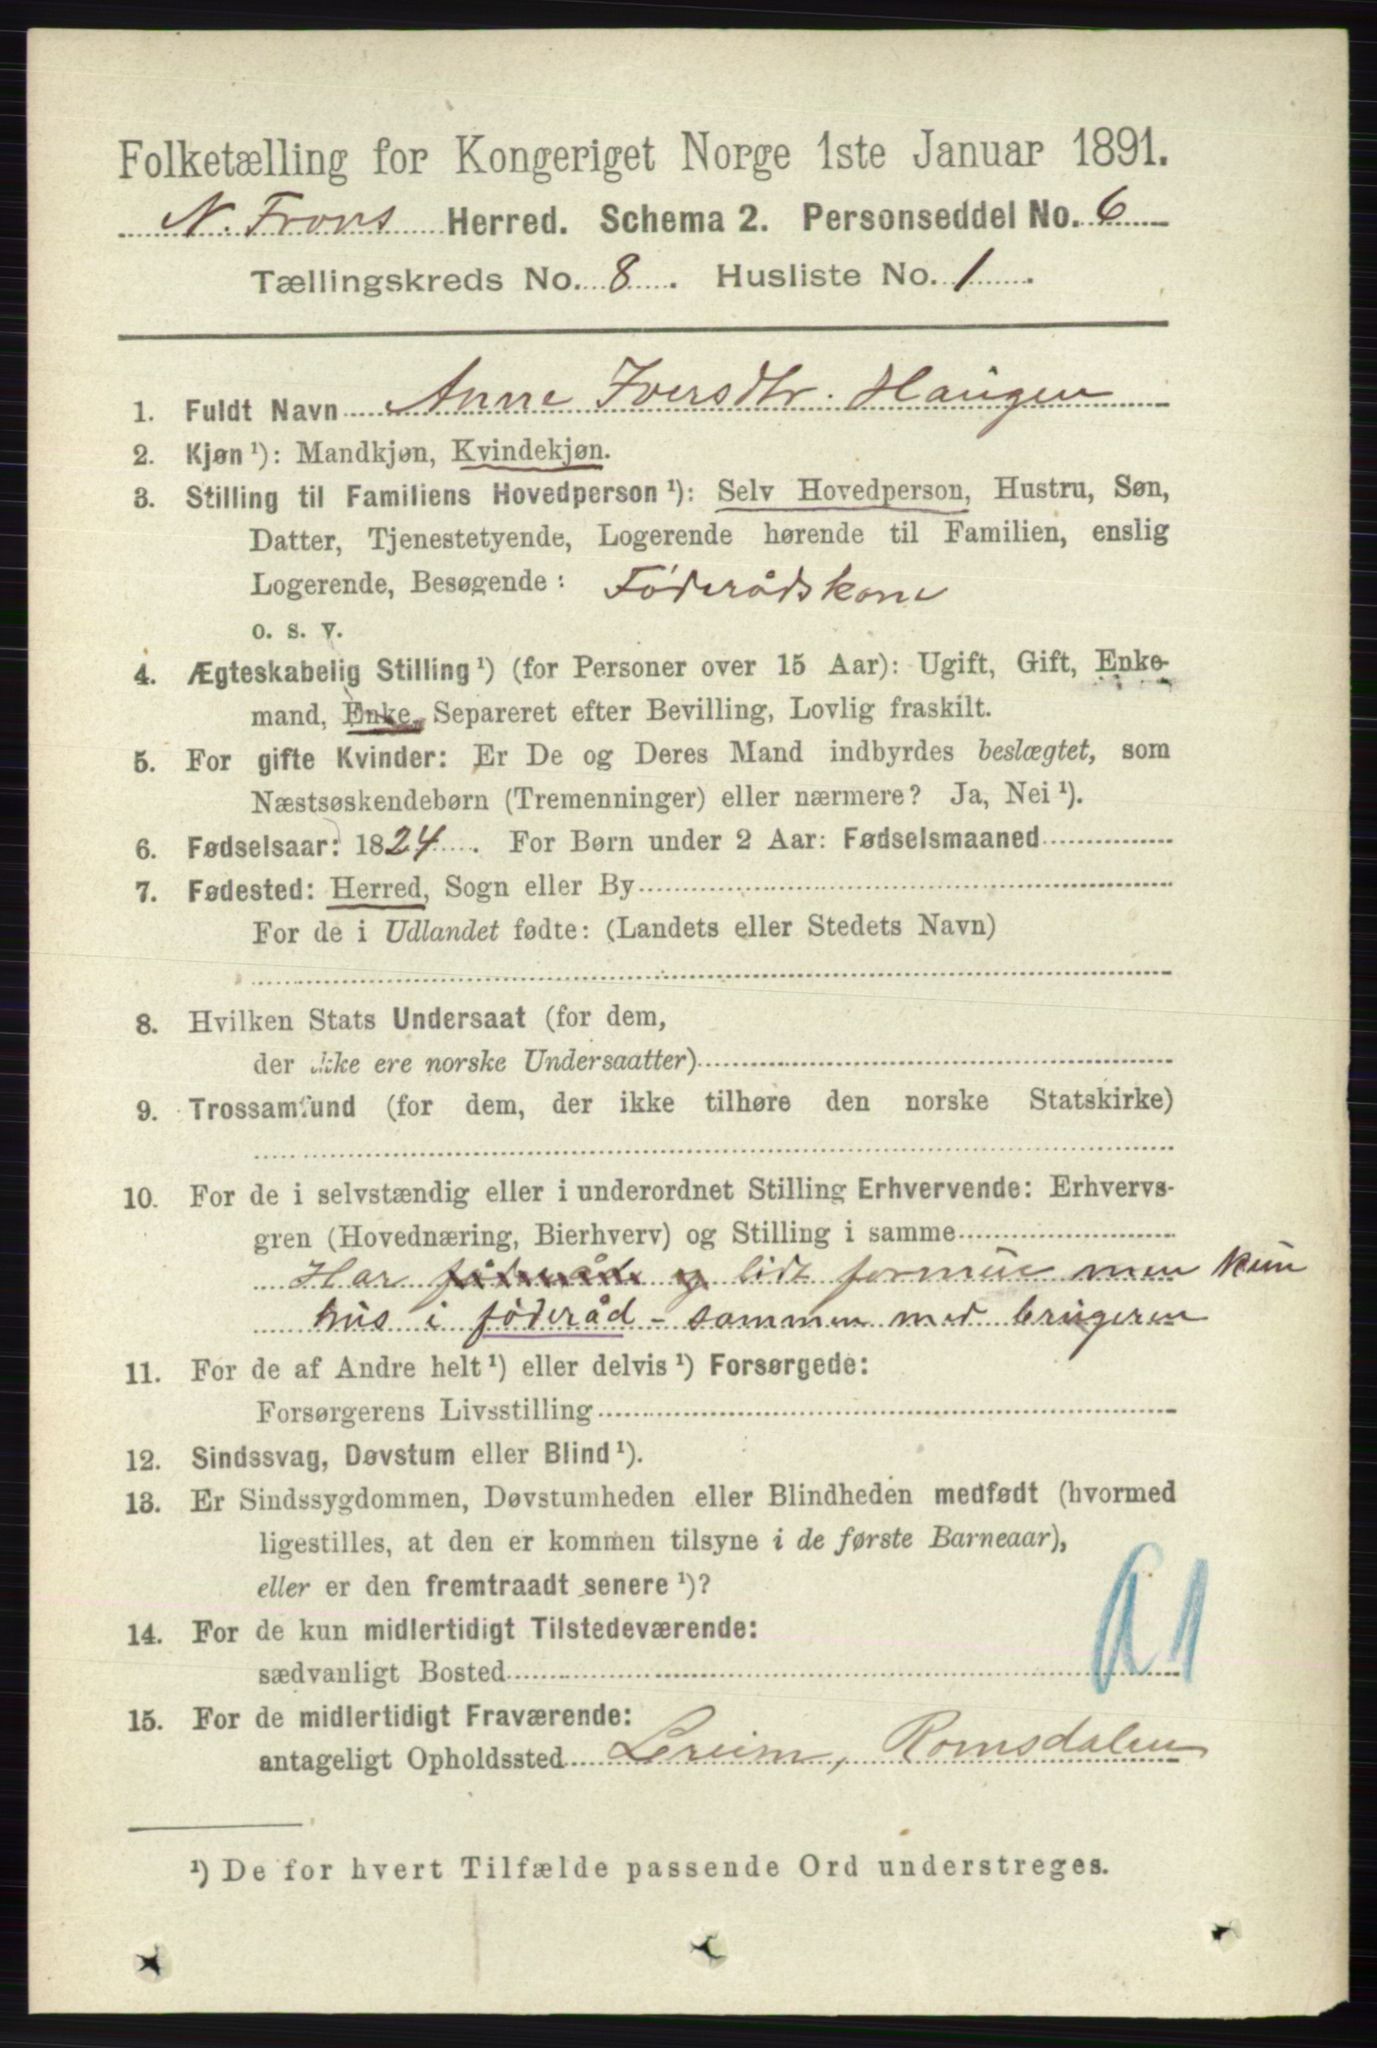 Folketælling for Kongeriget Norge 1ste Januar 1891.
N. Frons Herred. Schema 2. Personseddel No. 6
Tællingskreds No. 8. Husliste No. 1.
1. Fuldt Navn Anne Iversdtr. Haugen
2. Kjøn¹): Mandkjøn, Kvindekjøn.
3. Stilling til Familiens Hovedperson¹): Selv Hovedperson, Hustru, Søn,
Datter, Tjenestetyende, Logerende hørende til Familien, enslig
Logerende, Besøgende: Föderådskone
o. s. v.
4. Ægteskabelig Stilling¹) (for Personer over 15 Aar): Ugift, Gift, Enke-
mand, Enke, Separeret efter Bevilling, Lovlig fraskilt.
5. For gifte Kvinder: Er De og Deres Mand indbyrdes beslægtet, som
Næstsøskendebørn (Tremenninger) eller nærmere? Ja, Nei¹).
6. Fødselsaar: 1824. For Børn under 2 Aar: Fødselsmaaned
7. Fødested: Herred, Sogn eller By
For de i Udlandet fødte: (Landets eller Stedets Navn)
8. Hvilken Stats Undersaat (for dem,
der ikke ere norske Undersaatter)
9. Trossamfund (for dem, der ikke tilhøre den norske Statskirke)
10. For de i selvstændig eller i underordnet Stilling Erhvervende: Erhvervs-
gren (Hovednæring, Bierhverv) og Stilling i samme
Har föderåd og lidt formue men kun
hus i föderåd - sammen med brugeren
11. For de af Andre helt¹) eller delvis¹) Forsørgede:
Forsørgerens Livsstilling
12. Sindssvag, Døvstum eller Blind¹).
13. Er Sindssygdommen, Døvstumheden eller Blindheden medfødt (hvormed
ligestilles, at den er kommen tilsyne i de første Barneaar),
eller er den fremtraadt senere¹)?
14. For de kun midlertidigt Tilstedeværende:
sædvanligt Bosted
15. For de midlertidigt Fraværende:
antageligt Opholdssted Romsdalen
¹) De for hvert Tilfælde passende Ord understreges.